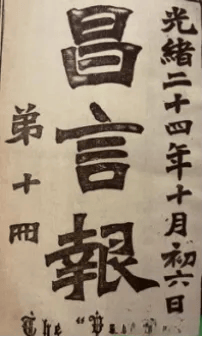 光緒二十四年十月初六日
昌言報
第十冊
The "